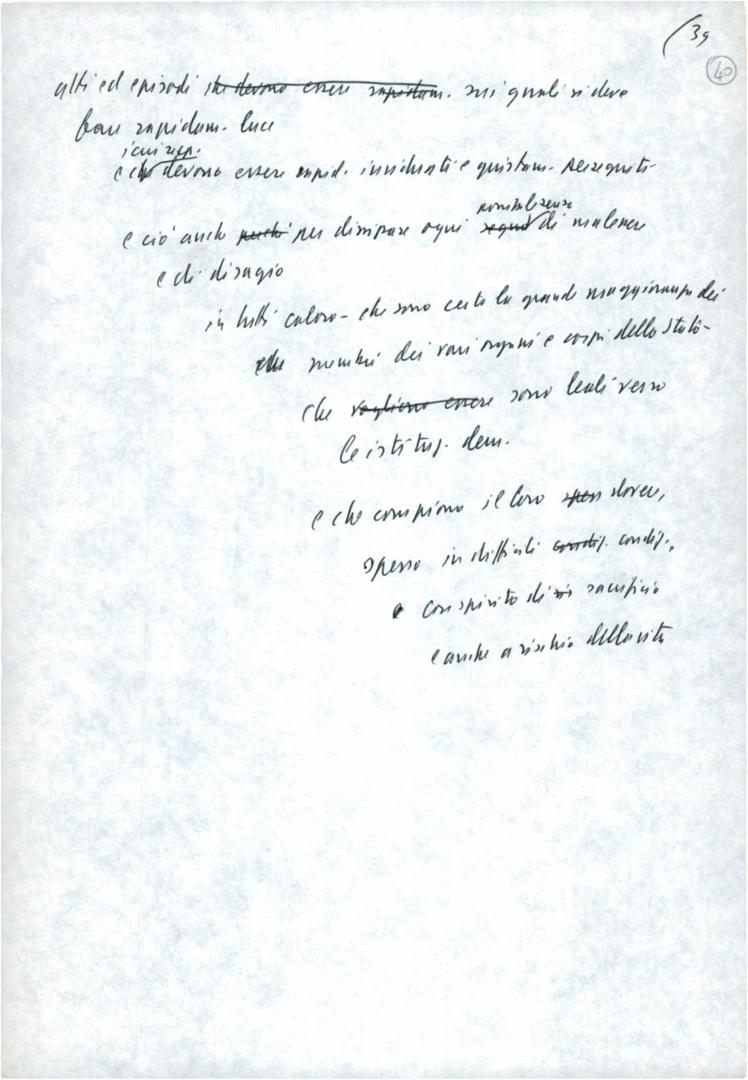 (39
40
atti ed episodi che devono essere rapidam. sui quali si deve
fare rapidam. luce
e che devono essere rapid. individuati e giustam. perseguiti
e ciò anche perché per dissipare ogni segno di malessere
e di disagio
in tutti coloro - che sono certo la grande maggioranza dei
membri dei vari organi e corpi dello stato -
che vogliono essere sono leali verso
le istituz. dem.
e che compiono il loro spess dovere,
spesso in difficili condiz. condiz.,
e con spirito di sacrificio
e anche a rischio della vita